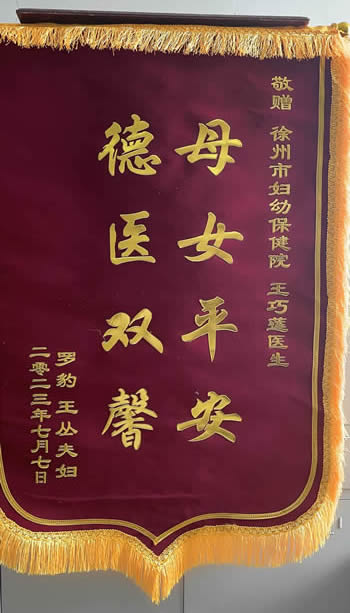 敬赠 徐州市妇幼保健院 王巧莲医生
母女平安
德医双馨
罗豹 王丛夫妇
二零二三年七月七日